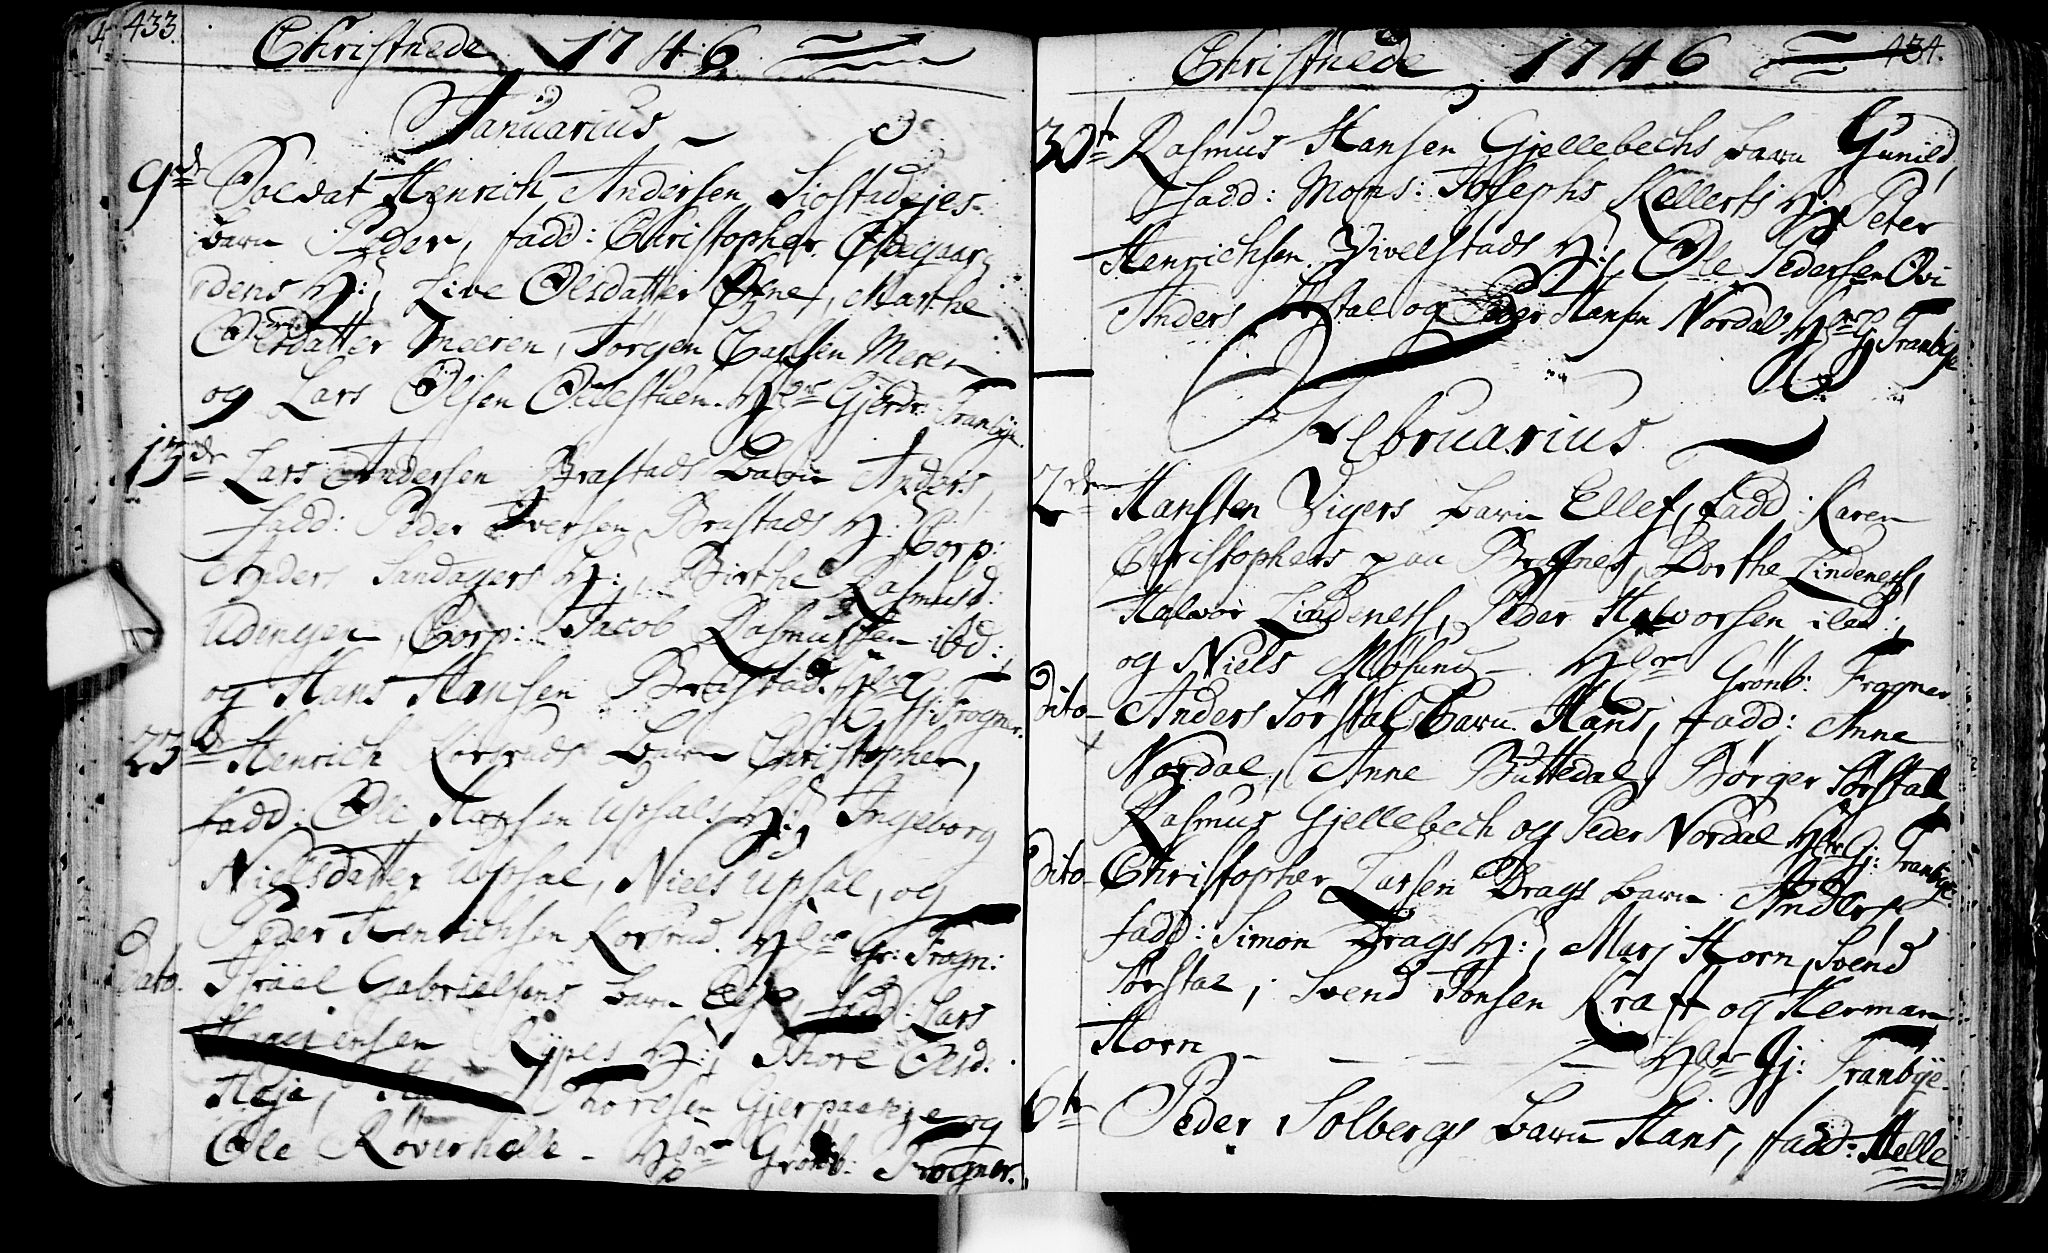 433.
Christnede 1746
Januarius
9de Soldat Henrich Andersen Siøstadejes
barn Peder, fadd: Christopher Ødegaar-
dens H:, Live Olsdatter Øfne, Marthe
Olsdatter Meeren, Jørgen Carlsen Meren
og Lars Olsen Oulestuen. Hr Gjerdr: Tranbye.
13de Lars Andersen Brastads barn Anders,
fadd: Peder Iversen Brastads H: Corp:
Anders Sandagers H:, Birthe Rasmusd:
Udengen, Corp: Jacob Rasmussen ibd:
og Hans Hansen Brastad. G: Frogner.
23d Henrich Korsruds barn Christopher,
fadd: Ole Hansen Upsals H:, Ingeborg
Nielsdatter Upsal, Niels Upsal, og
Peder Henrichsen Korsrud. Hr Gr: Frogn:
Dato. Israel Gabrielsens barn fadd: Lars
Rypes H:, Thore Olsd.
Heje, Thoresen Gjerpaaeje og
Ole Røverholle - Hr Grønb: Frogner.
Christnede 1746
434.
30te Rasmus Hansen Gjellebechs barn Gunild,
fadd: Mons: Josephs Kellerts H: Peter
Henrichsen Vivelstads H:, Ole Pedersen Ovi
Anders Sørstal og Peder Hansen Nordal. Hr G Tranbye
Februarius
2den Hansten Vigers barn Ellef, fadd: Karen
Christophers paa Dorthe Lindenes,
Halvor Lindenes, Peder Halvorsen ibd:,
og Niels Møsund - Hr Grønb: Frogner.
Dito - Anders Sørstals barn Hans, fadd: Anne
Nordal, Anne Buttedal, Børger Sørstal
Rasmus Gjellebech og Peder Nordal Hr Gj: Tranbye.
Dito - Christopher Larsen Drags barn Anders,
fadd: Simon Drags H:, Marj Horn, Svend
Sørstal, Svend Jonsen Kraft og Herman
Horn - - - - Hr Gj: Tranbye.
6te Peder Solbergs barn Hans, fadd: Helle